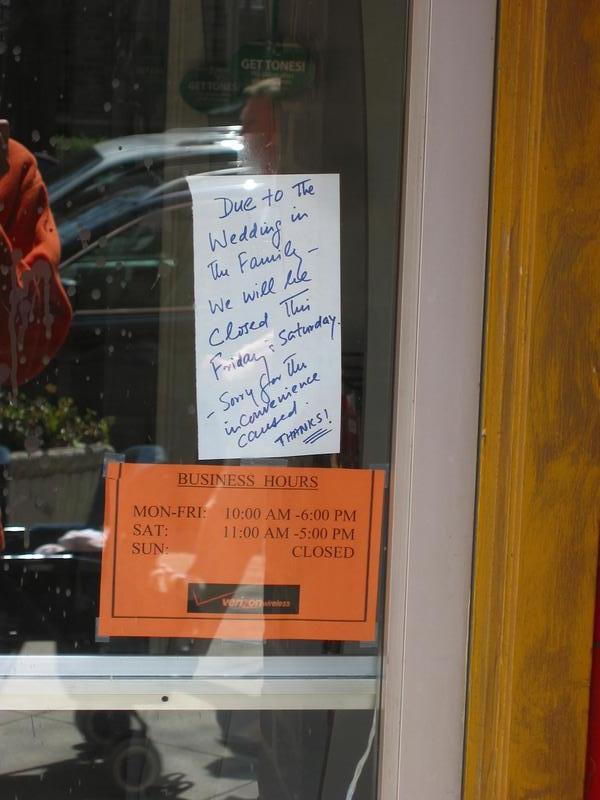 GET TONES!
GET TONES!
Due to The
Wedding in
The Family -
We will be
Closed This
Friday & Saturday.
- Sorry for The
inconvenience
caused.
THANKS!
BUSINESS HOURS
MON-FRI: 10:00 AM -6:00 PM
SAT: 11:00 AM -5:00 PM
SUN: CLOSED
verizon wireless